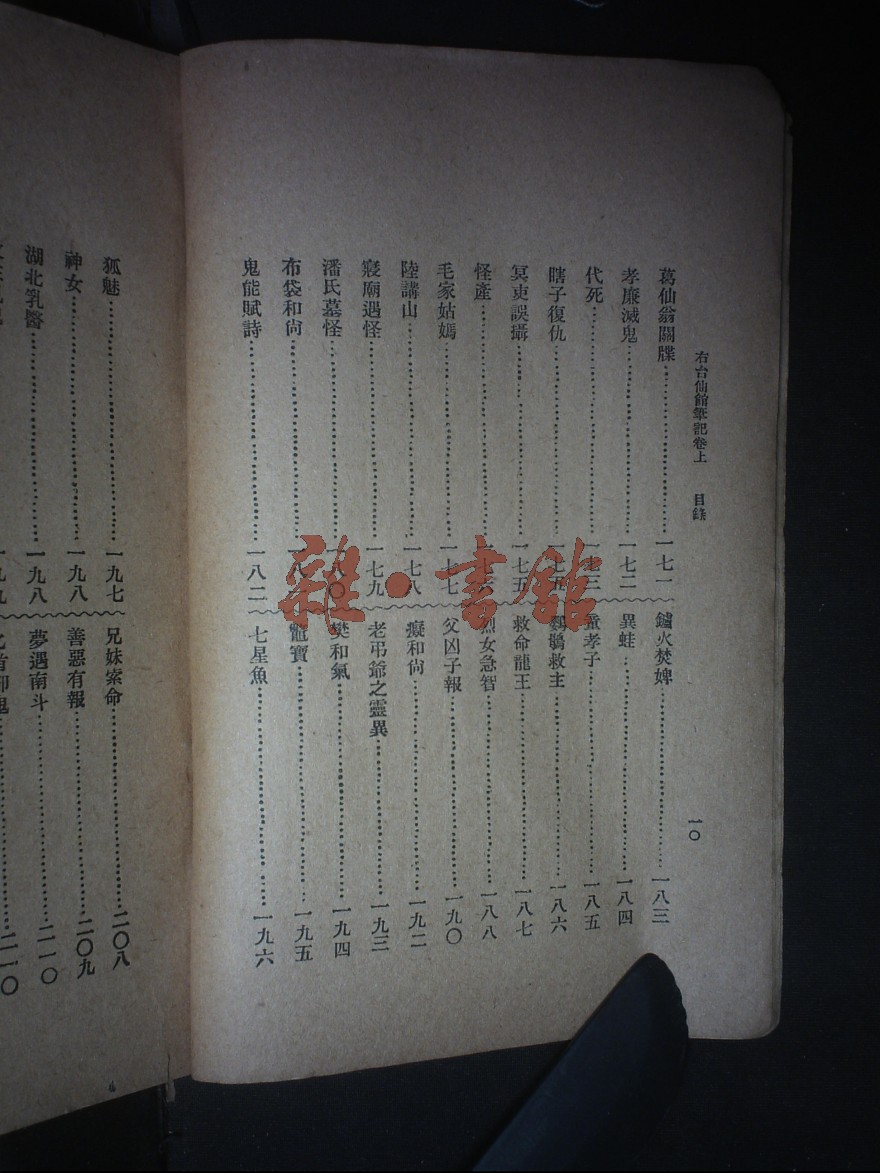 右台仙館筆記卷上 目錄 一〇
葛仙翁關牒 一七一
孝廉滅鬼 一七二
代死 一七三
瞎子復仇 一七五
冥吏誤攝 一七五
怪產
毛家姑媽 一七七
陸講山 一七八
寢廟遇怪 一七九
潘氏墓怪 一八〇
布袋和尙
鬼能賦詩 一八二
鑪火焚婢 一八三
異蛙 一八四
孝子 一八五
救主 一八六
救命龍王 一八七
烈女急智 一八八
父凶子報 一九〇
癡和尙 一九二
老弔爺之靈異 一九三
樊和氣 一九四
寶 一九五
七星魚 一九六
狐魅 一九七
神女 一九八
湖北乳醫 一九八
兄妹索命 二〇八
善惡有報 二〇九
夢遇南斗 二一〇
二一〇
雜·書館